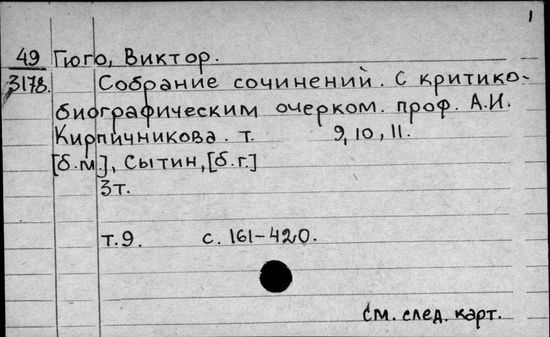 1
49 Гюго, Виктор.
3178. Собрание сочинений. С критико-
биографическим очерком. проф. А.И.
Кирпичникова. т. 9, 10, 11.
[б.м.], Сытин, [б.г.]
3т.
т.9. с. 161-420.
см. след. карт.